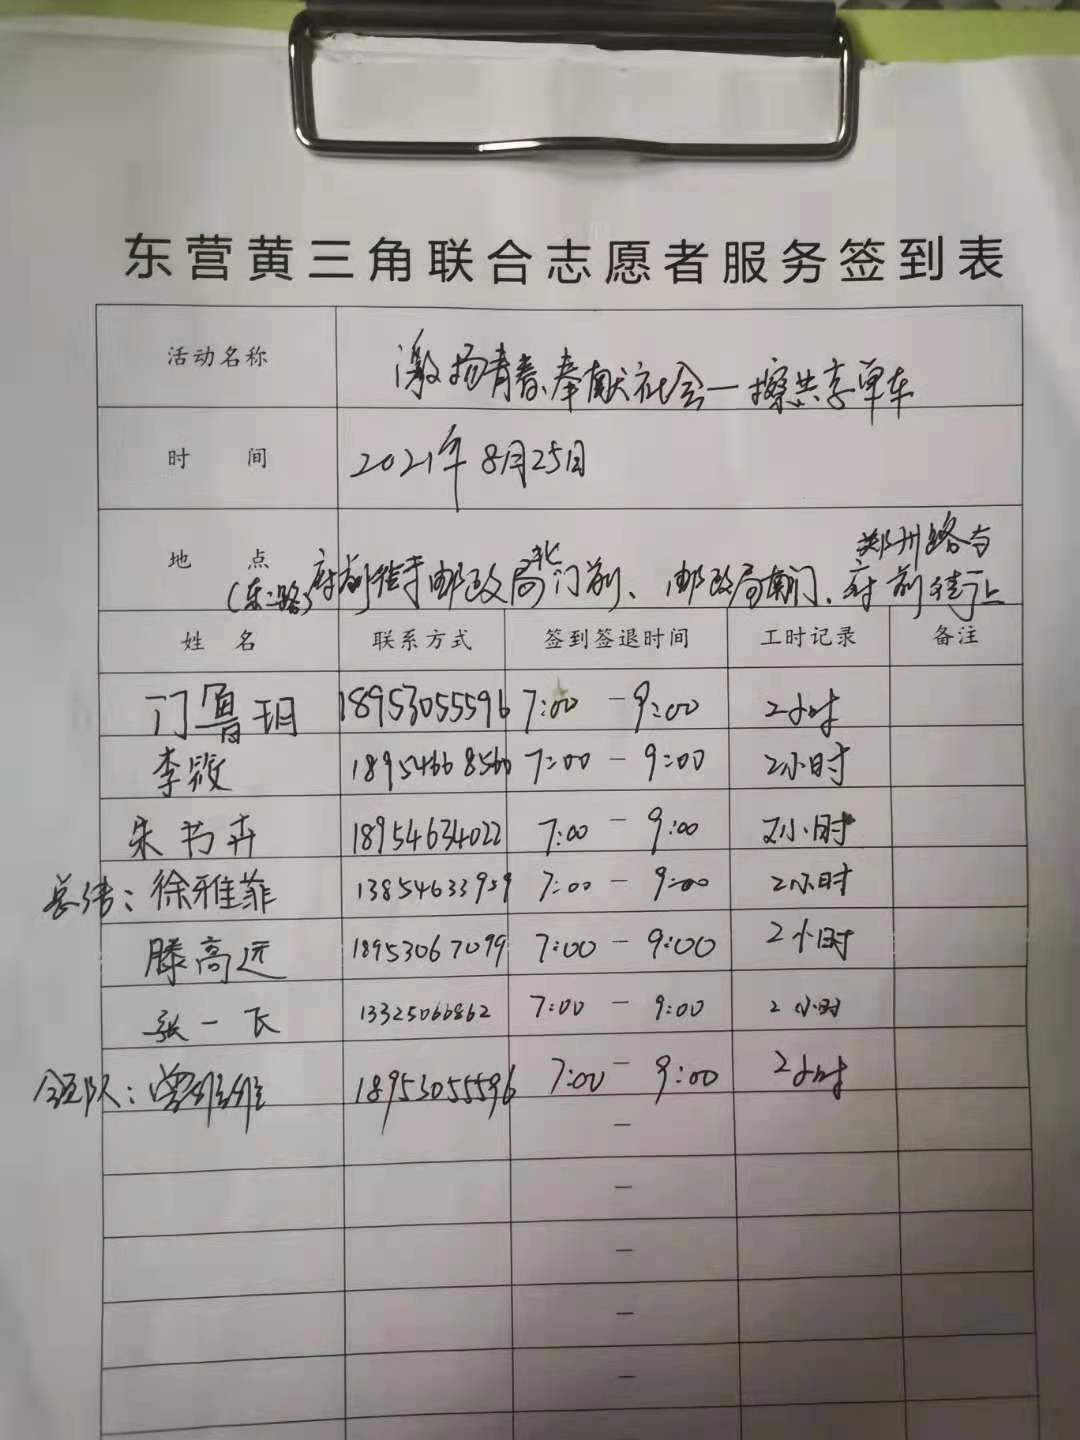 东营黄三角联合志愿者服务签到表
活动名称 激扬青春、奉献社会—擦共享单车
时 间 2021年8月25日
郑州路与
地 点 北
(东二路)府前街于邮政局门前、邮政局南门、府前街于上
姓 名 联系方式 签到签退时间 工时记录 备注
门鲁玥 18953055596 7:00 — 9:00 2小时
李筱 18954668560 7:00 — 9:00 2小时
朱书卉 18954634022 7:00 — 9:00 2小时
徐雅菲 13854633939 7:00 — 9:00 2小时
滕高远 18953067099 7:00 — 9:00 2个时
张一飞 13325066862 7:00 — 9:00 2小时
领队:曾维维 18953055596 7:00 — 9:00 2小时
—
—
—
—
—